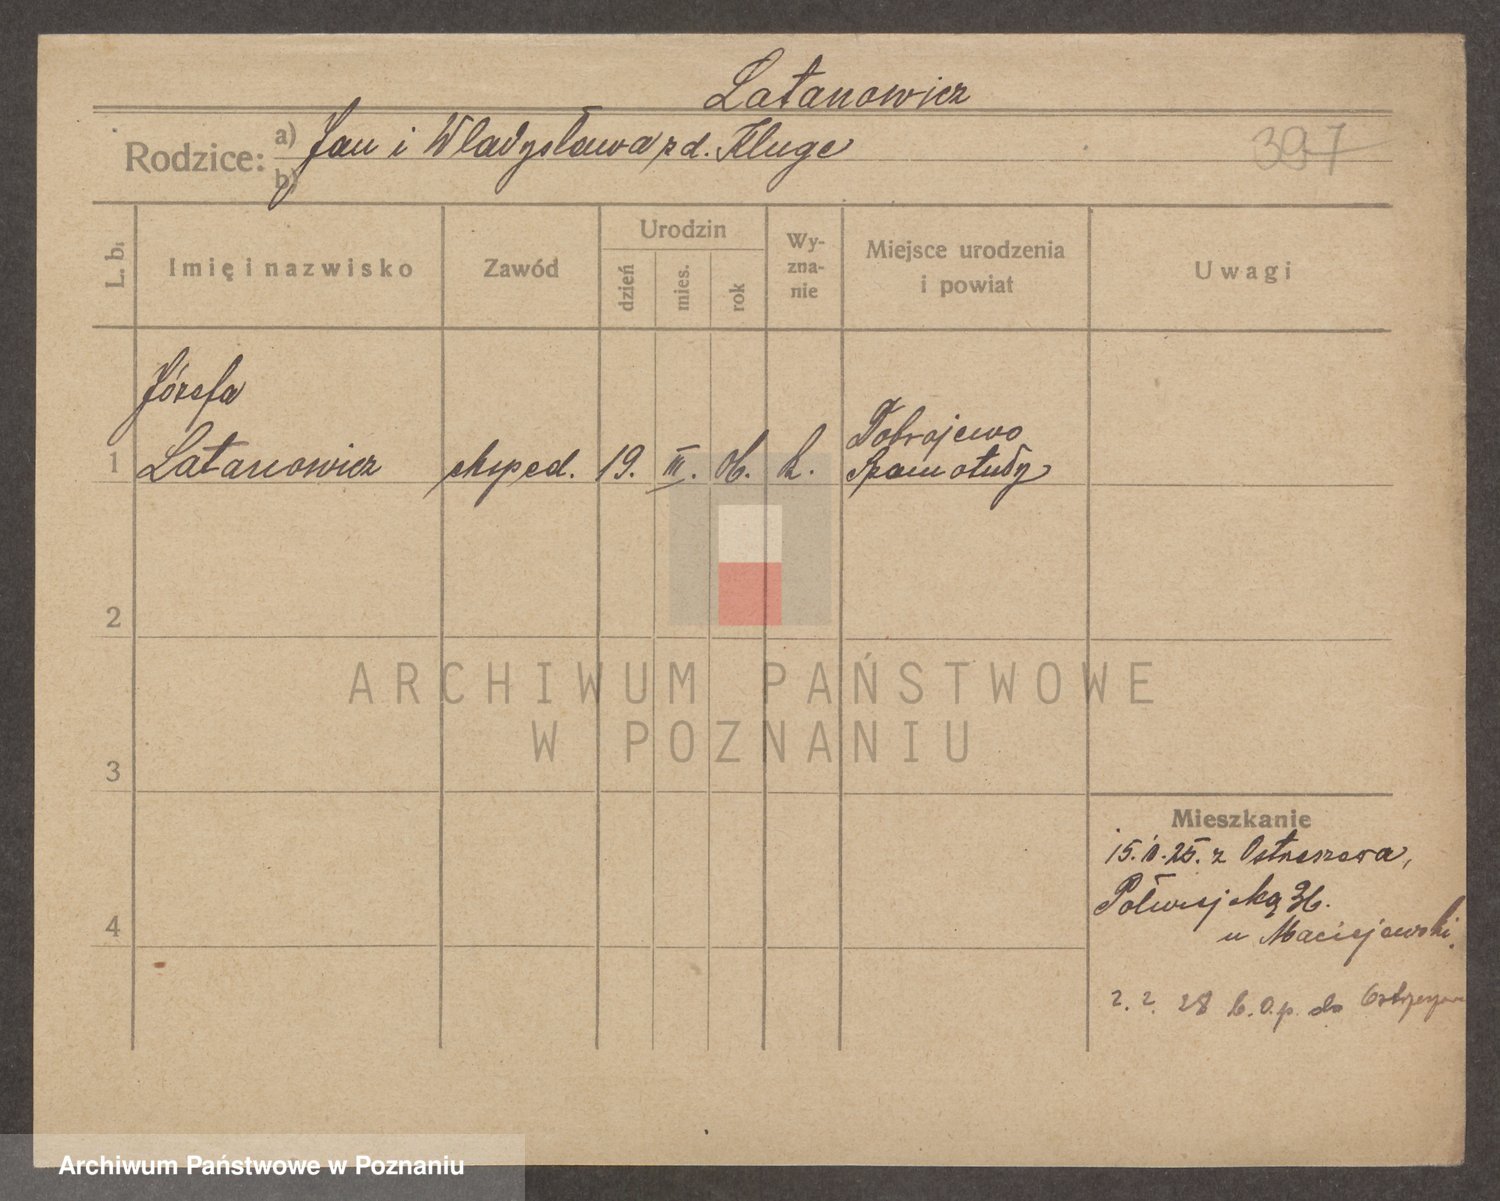 Latanowicz
Rodzice: a) Jan i Władysława z d. Kluge
b)
397
L. b.
Imię i nazwisko
Zawód
Urodzin
dzień
mies.
rok
Wy-
zna-
nie
Miejsce urodzenia
i powiat
Uwagi
Józefa
1 Latanowicz eksped. 19. III. 06. k. Dobrojewo
Szamotuły
2
3
4
Mieszkanie
15. 25. z
Półwiejska 36.
u Maciejewski.
2. 2. 28 b. O. p. do
ARCHIWUM PAŃSTWOWE
W POZNANIU
Archiwum Państwowe w Poznaniu